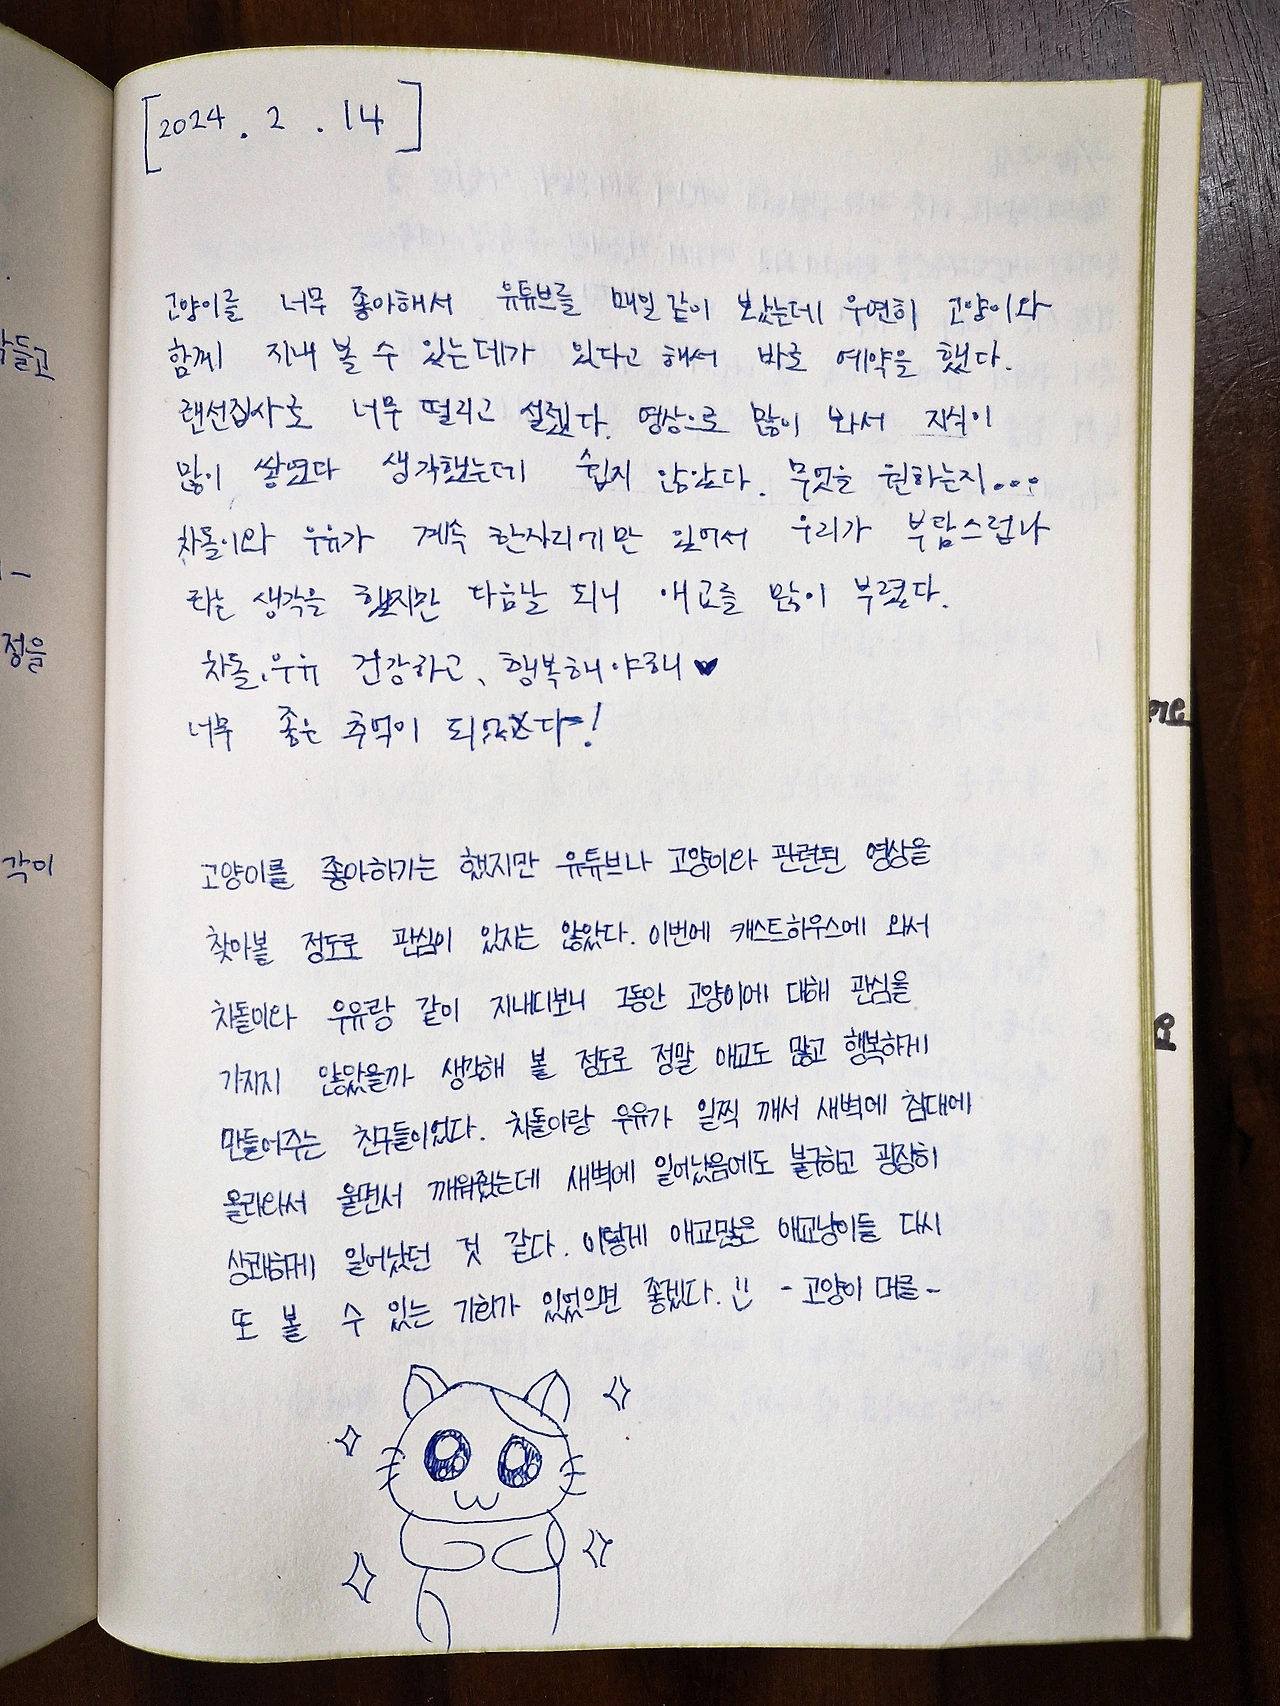 [2024. 2. 14]
고양이를 너무 좋아해서 유튜브를 매일 같이 보았는데 우연히 고양이와
함께 지내 볼 수 있는데가 있다고 해서 바로 예약을 했다.
랜선집사로 너무 떨리고 설렜다. 영상으로 많이 봐서 지식이
많이 쌓였다 생각했는데 쉽지 않았다. 무엇을 원하는지...
차돌이와 우유가 계속 한자리에만 있어서 우리가 부담스럽나
라는 생각을 했지만 다음날 되니 애교를 많이 부렸다.
차돌, 우유 건강하고, 행복해야해 ♥
너무 좋은 추억이 되었다!
고양이를 좋아하기는 했지만 유튜브나 고양이와 관련된 영상을
찾아볼 정도로 관심이 있지는 않았다. 이번에 캐스트하우스에 와서
차돌이와 우유랑 같이 지내다보니 그동안 고양이에 대해 관심을
가지지 않았을까 생각해 볼 정도로 정말 애교도 많고 행복하게
만들어주는 친구들이었다. 차돌이랑 우유가 일찍 깨서 새벽에 침대에
올라와서 울면서 깨워줬는데 새벽에 일어났음에도 불구하고 굉장히
상쾌하게 일어났던 것 같다. 이렇게 애교많은 애교냥이들 다시
또 볼 수 있는 기회가 있었으면 좋겠다. - 고양이 머를 -
각들고
정을
각이
요